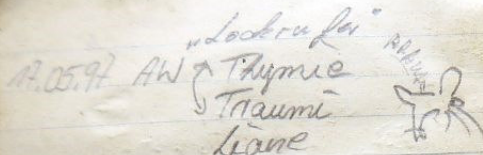 „Lockrufer"
17.05.97 AW Thymie
Traumi
Liane